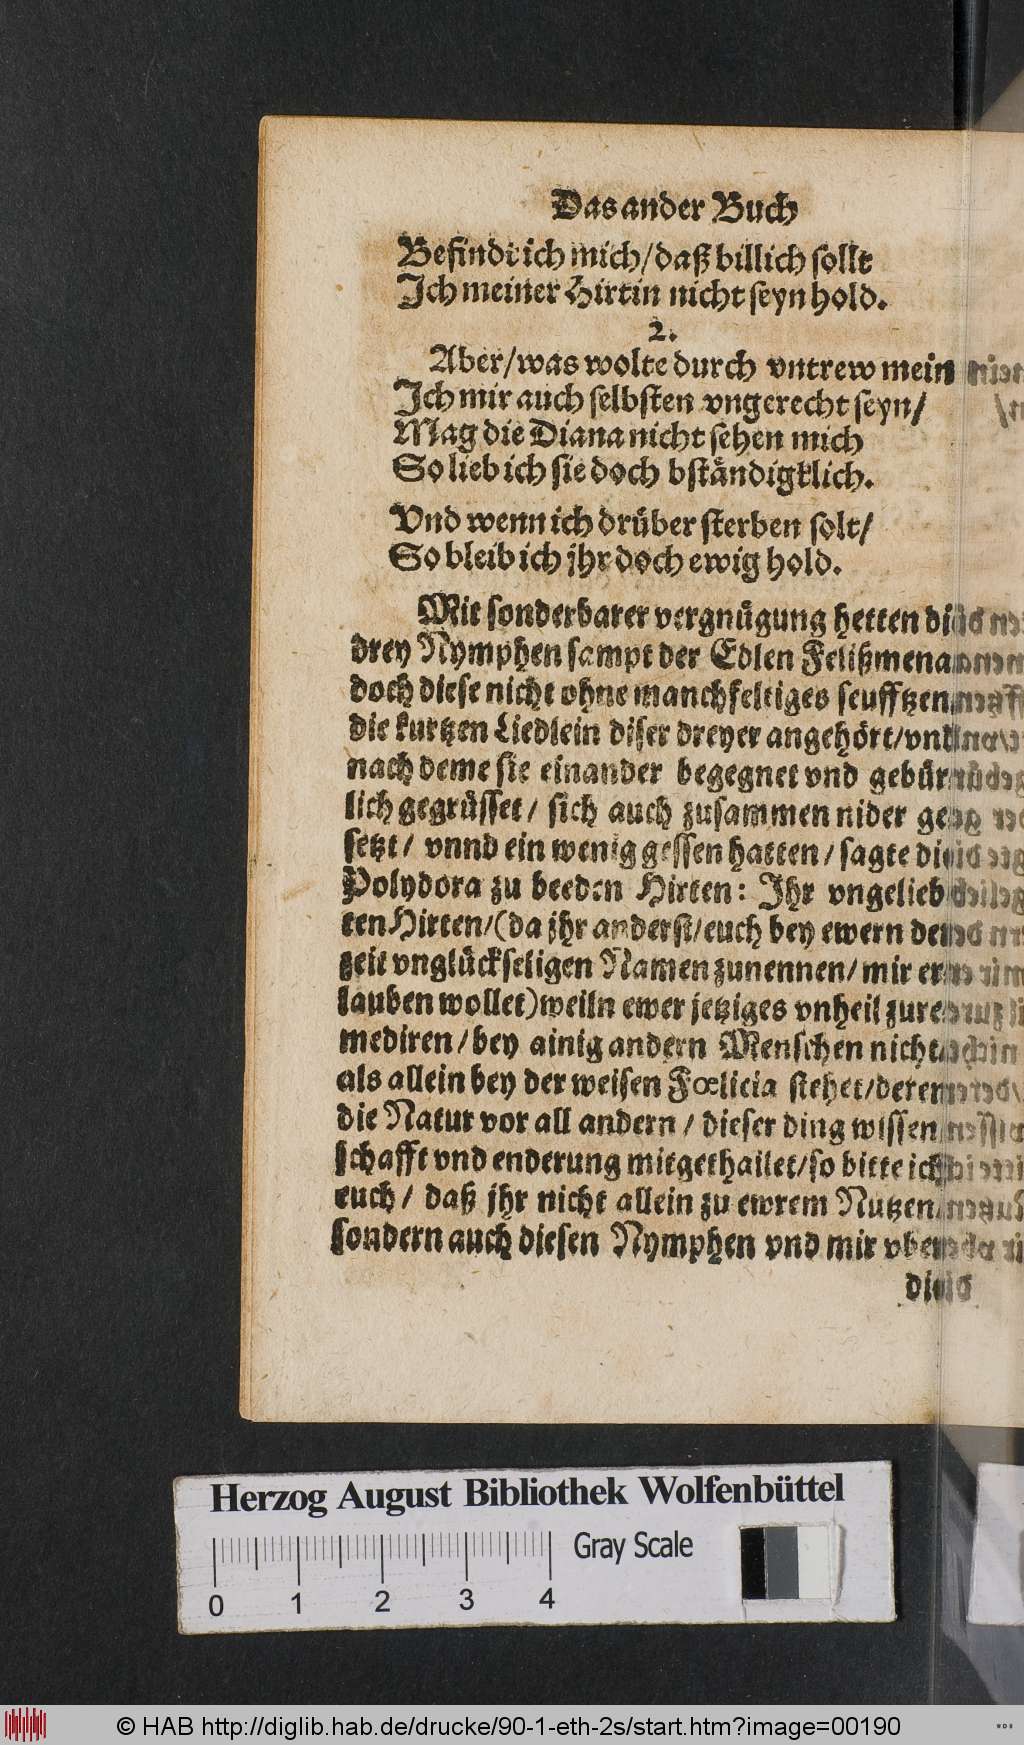 Das ander Buch
Befindt ich mich/daß billich sollt
Ich meiner Hirtin nicht seyn hold.
2.
Aber/was wolte durch vntrew mein
Ich mir auch selbsten vngerecht seyn/
Mag die Diana nicht sehen mich
So lieb ich sie doch bständigklich.
Vnd wenn ich drüber sterben solt/
So bleib ich jhr doch ewig hold.
Mit sonderbarer vergnügung hetten die
drey Nymphen sampt der Edlen Felißmena
doch diese nicht ohne manchfeltiges seufftzen/
die kurtzen Liedlein diser dreyer angehört/vnd
nach deme sie einander begegnet vnd gebür
lich gegrüsset/ sich auch zusammen nider ge
setzt/ vnnd ein wenig gessen hatten/ sagte die
Polydora zu beeden Hirten: Ihr vngelieb
ten Hirten/(da jhr anderst/euch bey ewern der
zeit vnglückseligen Namen zunennen/mir er
lauben wollet)weiln ewer jetziges vnheil zure
mediren/bey ainig andern Menschen nicht/
als allein bey der weisen Fœlicia stehet/deren
die Natur vor all andern/ dieser ding wissen
schafft vnd enderung mitgethailet/so bitte ich
euch/ daß jhr nicht allein zu ewrem Nutzen/
sondern auch diesen Nymphen vnd mir
die
Herzog August Bibliothek Wolfenbüttel
Gray Scale
0 1 2 3 4
© HAB http://diglib.hab.de/drucke/90-1-eth-2s/start.htm?image=00190